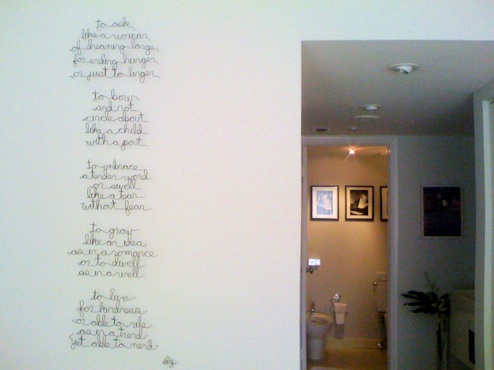 to ask
like a woman
of dreaming longer
for ending hunger
or just to linger
to bow
and not
circle about
like a child
with a pout
to embrace
a tender word
or swell
like a tear
without fear
to grow
like an idea
as in a romance
or to dwell
as in a well
to live
for kindness
or able to rule
as in a trend
yet able to mend